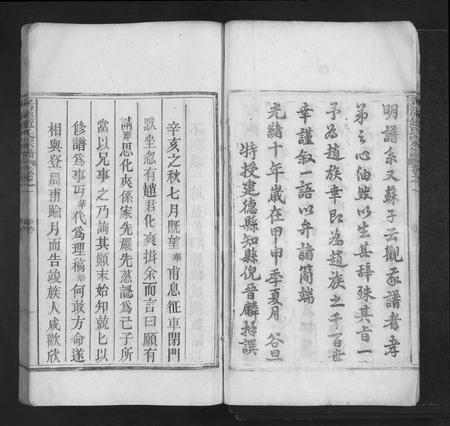 明譜系又蘇子云觀吾譜者孝
弟之心油然以生其辭殊其旨一
予為趙族幸即為趙族之千百世
幸謹敘一語以弁諸簡端
光緒十年歲在甲申季夏月穀旦
特授建德縣知縣倪晉麟拜譔
辛亥之秋七月既望華甫息征車閉門
默坐忽有趙君化爽揖余而言曰願有
請華思化爽係家先嚴先慈認為己子所
當以兄事之乃詢其顛末始知就匕以
修譜為事丐華代為理稿華何敢方命遂
相與登局甫踰月而告竣族人咸歡欣